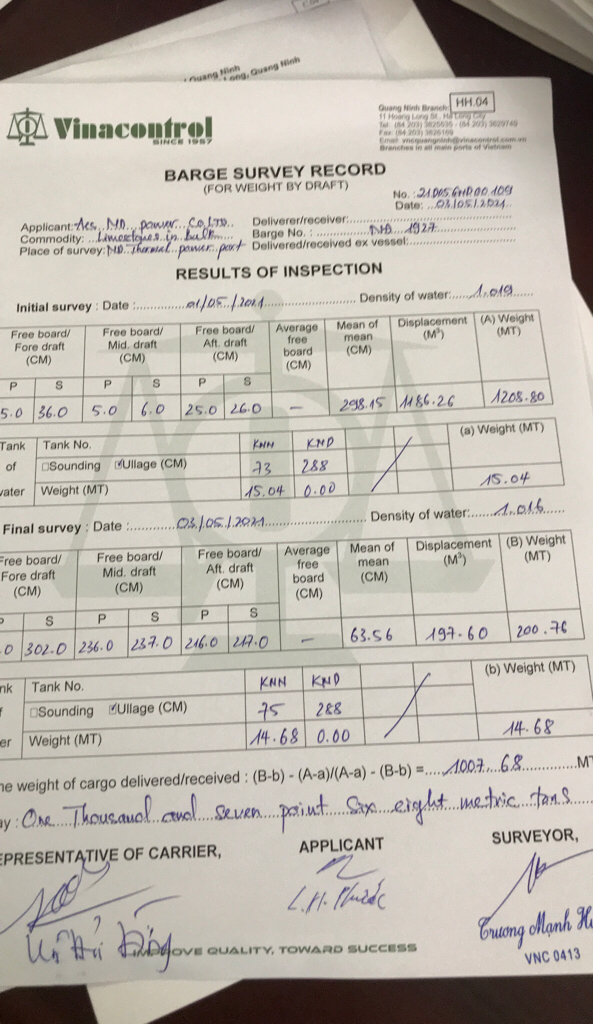 Quang Ninh
Long, Quang Ninh
Vinacontrol
SINCE 1957
Quang Ninh Branch: HH.04
11 Hoang Long St., Ha Long City
Branches in all main ports of Vietnam
BARGE SURVEY RECORD
(FOR WEIGHT BY DRAFT)
No. :21D05GHD00109
Date: ..03/05/2021
Applicant: Aes MD power Co.LTD Deliverer/receiver:
Commodity: Limestones in bulk Barge No. : NB 1927
Place of survey: MD Thermal power port Delivered/received ex vessel:
RESULTS OF INSPECTION
Initial survey : Date : 01/05/2021 Density of water: 1.019
Free board/ Fore draft (CM) Free board/ Mid. draft (CM) Free board/ Aft. draft (CM) Average free board (CM) Mean of mean (CM) Displacement (M³) (A) Weight (MT)
P S P S P S
5.0 36.0 5.0 6.0 25.0 26.0 – 298.15 1186.26 1208.80
Tank Tank No. KNN KND (a) Weight (MT)
of □Sounding ☑Ullage (CM) 73 288
water Weight (MT) 15.04 0.00 15.04
Final survey : Date : 03/05/2021 Density of water: 1.016
Free board/ Fore draft (CM) Free board/ Mid. draft (CM) Free board/ Aft. draft (CM) Average free board (CM) Mean of mean (CM) Displacement (M³) (B) Weight (MT)
P S P S P S
.0 302.0 236.0 237.0 216.0 217.0 – 63.56 197.60 200.76
nk Tank No. KNN KND (b) Weight (MT)
□Sounding ☑Ullage (CM) 75 288
er Weight (MT) 14.68 0.00 14.68
he weight of cargo delivered/received : (B-b) - (A-a)/(A-a) - (B-b) = 1007.68 MT
ay : One Thousand and seven point six eight metric tons
EPRESENTATIVE OF CARRIER, APPLICANT SURVEYOR,
L.H. Phước
Trương Mạnh
VNC 0413
IMPROVE QUALITY, TOWARD SUCCESS